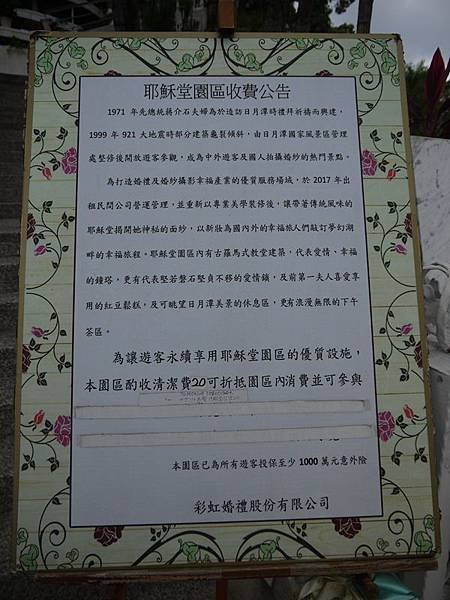 耶穌堂園區收費公告
1971 年先總統蔣介石夫婦為於造訪日月潭時禮拜祈禱而興建，
1999 年 921 大地震時部分建築龜裂傾斜，由日月潭國家風景區管理
處整修後開放遊客參觀，成為中外遊客及國人拍攝婚紗的熱門景點。
為打造婚禮及婚紗攝影幸福產業的優質服務場域，於 2017 年出
租民間公司營運管理，並重新以專業美學裝修後，讓帶著傳統風味的
耶穌堂揭開她神秘的面紗，以新妝為國內外的幸福旅人們敲訂夢幻湖
畔的幸福旅程。耶穌堂園區內有古羅馬式教堂建築，代表愛情、幸福
的鐘塔，更有代表堅若磐石堅貞不移的愛情鎖，及前第一夫人喜愛享
用的紅豆鬆糕，及可眺望日月潭美景的休息區，更有浪漫無限的下午
茶區。
為讓遊客永續享用耶穌堂園區的優質設施，
本園區酌收清潔費20可折抵園區內消費並可參與
本園區已為所有遊客投保至少 1000 萬元意外險
彩虹婚禮股份有限公司